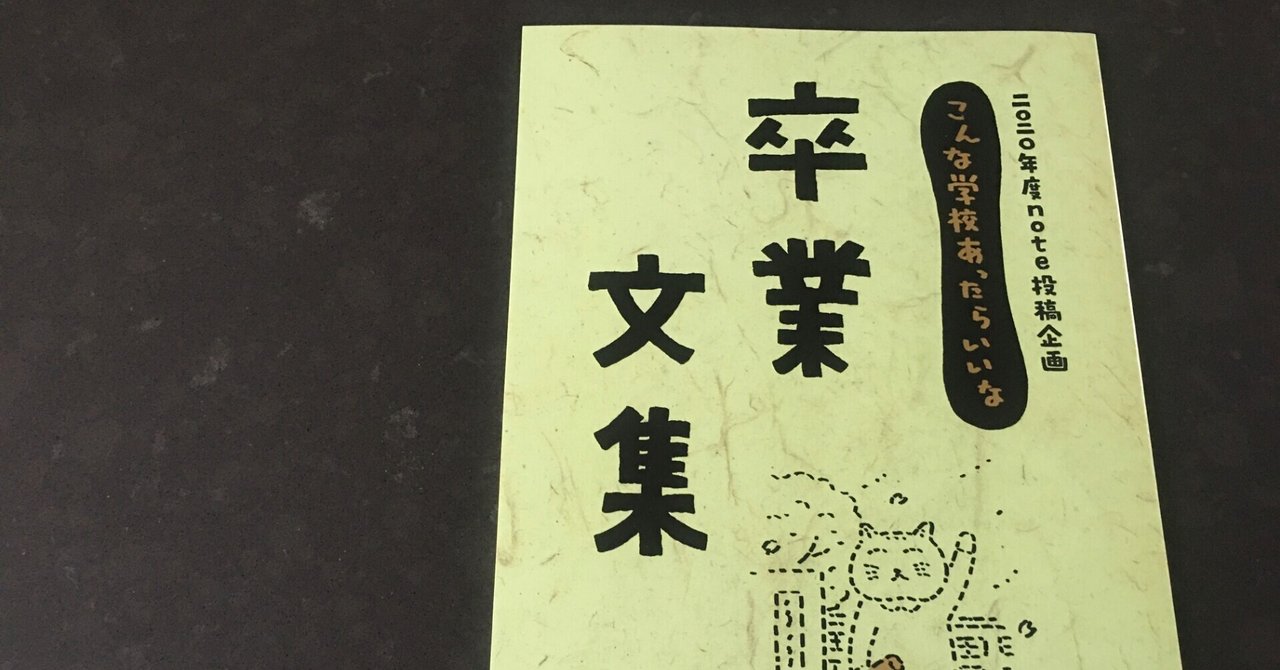 二〇二〇年度note投稿企画
こんな学校あったらいいな
卒業
文集